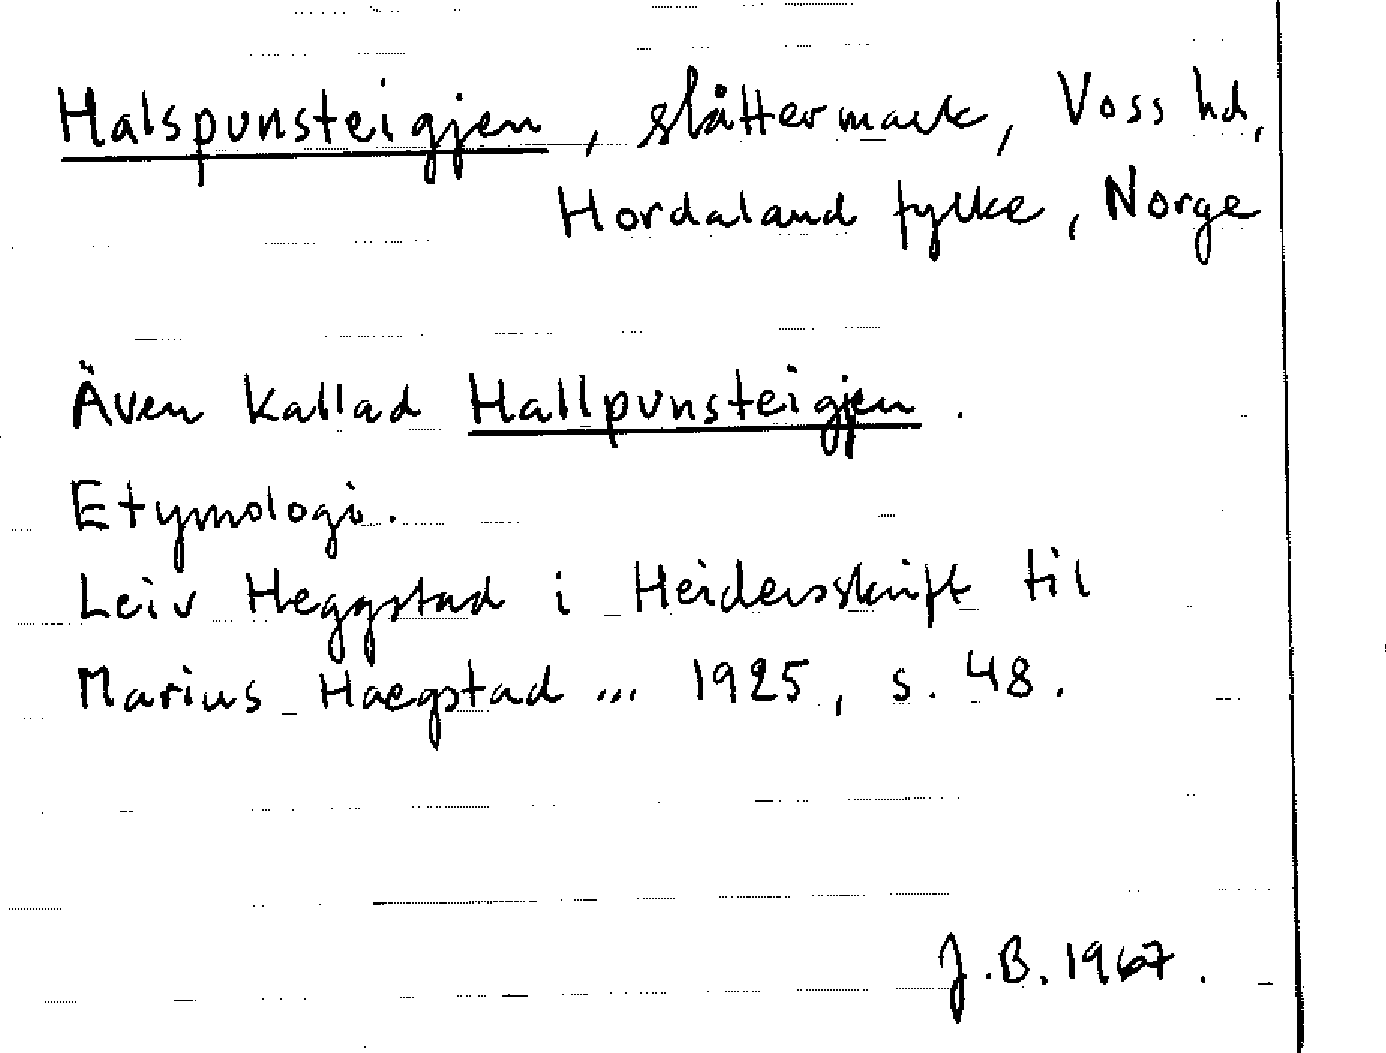 Halspunsteigjen, slåttermark, Voss hd,
Hordaland fylke, Norge
Även kallad Hallpunsteigjen.
Etymologi.
Leiv Heggstad i Heidersskrift til
Marius Haegstad ... 1925, s. 48.
J.B. 1967.